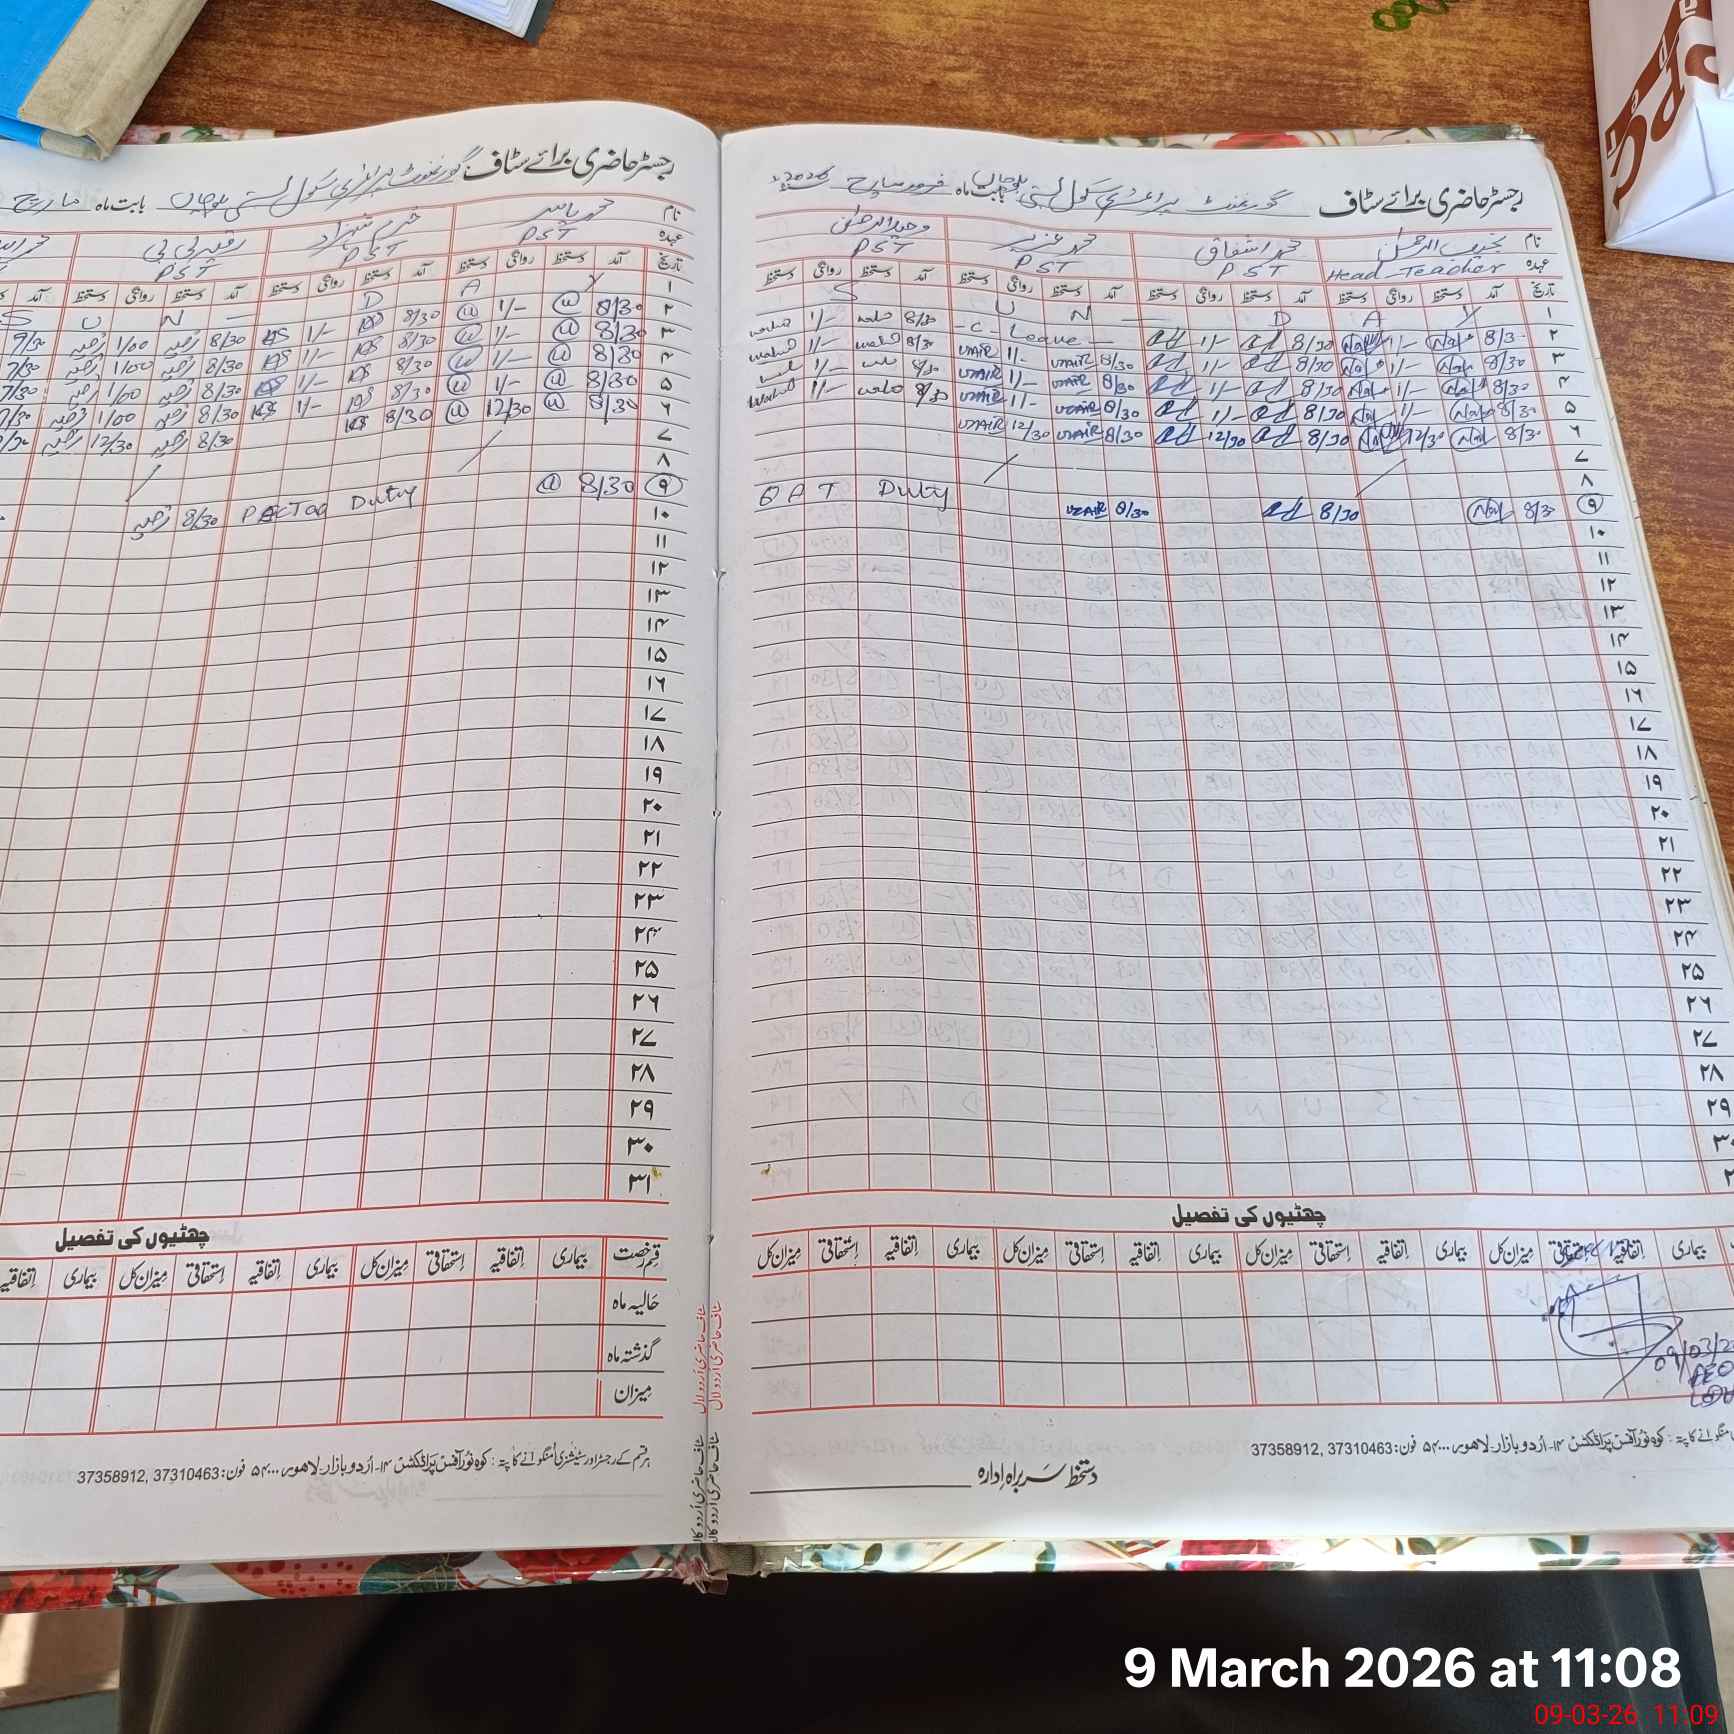 رجسٹر حاضری برائے سٹاف گورنمنٹ پرائمری سکول بستی بلوچاں بابت ماہ مارچ
نام محمد یاسر خرم شہزاد رقیہ بی بی
عہدہ PST PST PST
تاریخ آمد دستخط روانگی دستخط آمد دستخط روانگی دستخط آمد دستخط روانگی دستخط آمد
۱ S U N - D A Y
۲ 8/30 @ 1/- @ 8/30 KS 1/- KS 8/30 رقیہ 1/00 رقیہ 7/30
۳ 8/30 @ 1/- @ 8/30 KS 1/- KS 8/30 رقیہ 1/00 رقیہ 7/30
۴ 8/30 @ 1/- @ 8/30 KS 1/- KS 8/30 رقیہ 1/00 رقیہ 7/30
۵ 8/30 @ 1/- @ 8/30 KS 1/- KS 8/30 رقیہ 1/00 رقیہ 7/30
۶ 8/30 @ 12/30 @ 8/30 KS 8/30 رقیہ 12/30 رقیہ
۷
۸
۹ 8/30 @ Duty 8/30 رقیہ
۱۰
۱۱
۱۲
۱۳
۱۴
۱۵
۱۶
۱۷
۱۸
۱۹
۲۰
۲۱
۲۲
۲۳
۲۴
۲۵
۲۶
۲۷
۲۸
۲۹
۳۰
۳۱
چھٹیوں کی تفصیل
قسم رخصت بیماری اتفاقیہ استحقاقی میزان کل بیماری اتفاقیہ استحقاقی میزان کل بیماری اتفاقیہ
حالیہ ماہ
گذشتہ ماہ
میزان
ہر قسم کے رجسٹر اور سٹیشنری منگوانے کا پتہ : کوہ نور آفس پراڈکشن ۱۴۔ اُردو بازار۔ لاہور ...۵۴ فون: 37310463 ,37358912
رجسٹر حاضری برائے سٹاف گورنمنٹ پرائمری سکول بستی بلوچاں بابت ماہ مارچ 2026ء
نام نجیب الرحمن محمد اشفاق محمد عزیر وحید الرحمن
عہدہ Head Teacher PST PST PST
تاریخ آمد دستخط روانگی دستخط آمد دستخط روانگی دستخط آمد دستخط روانگی دستخط آمد دستخط روانگی دستخط
۱ S U N — D A Y
۲ 8/30 1/- 8/30 1/- - C - Leave - 8/30 wahd 1/- wahd
۳ 8/30 1/- 8/30 1/- 8/30 UZAIR 1/- UZAIR 8/30 wahd 1/- wahd
۴ 8/30 1/- 8/30 1/- 8/30 UZAIR 1/- UZAIR 8/30
۵ 8/30 1/- 8/30 1/- 8/30 UZAIR 1/- UZAIR 8/30 wahd 1/- wahd
۶ 8/30 12/30 8/30 12/30 8/30 UZAIR 12/30 UZAIR
۷
۸
۹ 8/30 8/30 8/30 UZAIR QAT Duty
۱۰
۱۱
۱۲
۱۳
۱۴
۱۵
۱۶
۱۷
۱۸
۱۹
۲۰
۲۱
۲۲
۲۳
۲۴
۲۵
۲۶
۲۷
۲۸
۲۹
چھٹیوں کی تفصیل
بیماری اتفاقیہ استحقاقی میزان کل بیماری اتفاقیہ استحقاقی میزان کل بیماری اتفاقیہ استحقاقی میزان کل بیماری اتفاقیہ استحقاقی میزان کل
09/03/2
AEO
کوہ نور آفس پراڈکشن ۱۴۔ اُردو بازار۔ لاہور ...۵۴ فون: 37310463 ,37358912
دستخط سربراہ اِدارہ
9 March 2026 at 11:08
09-03-26 11:09